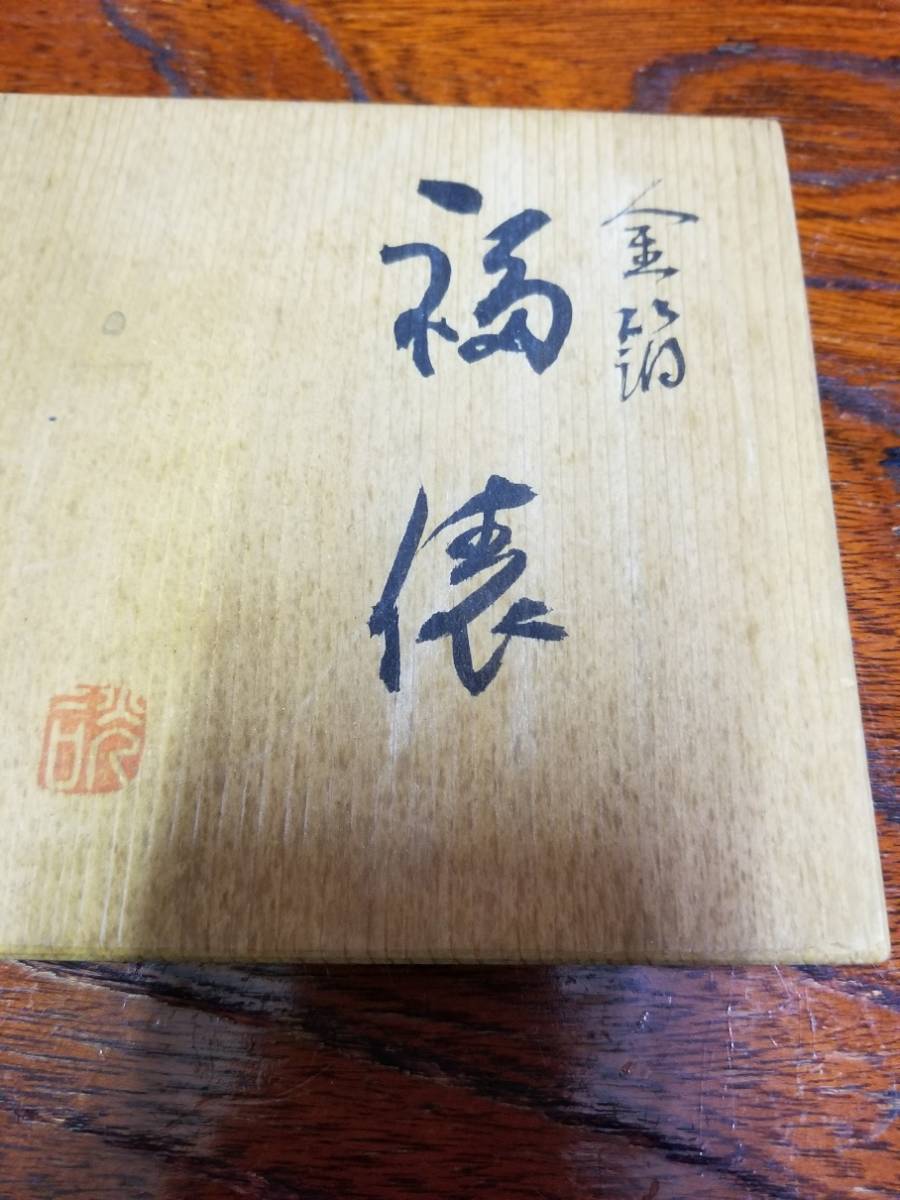 金箔
福俵